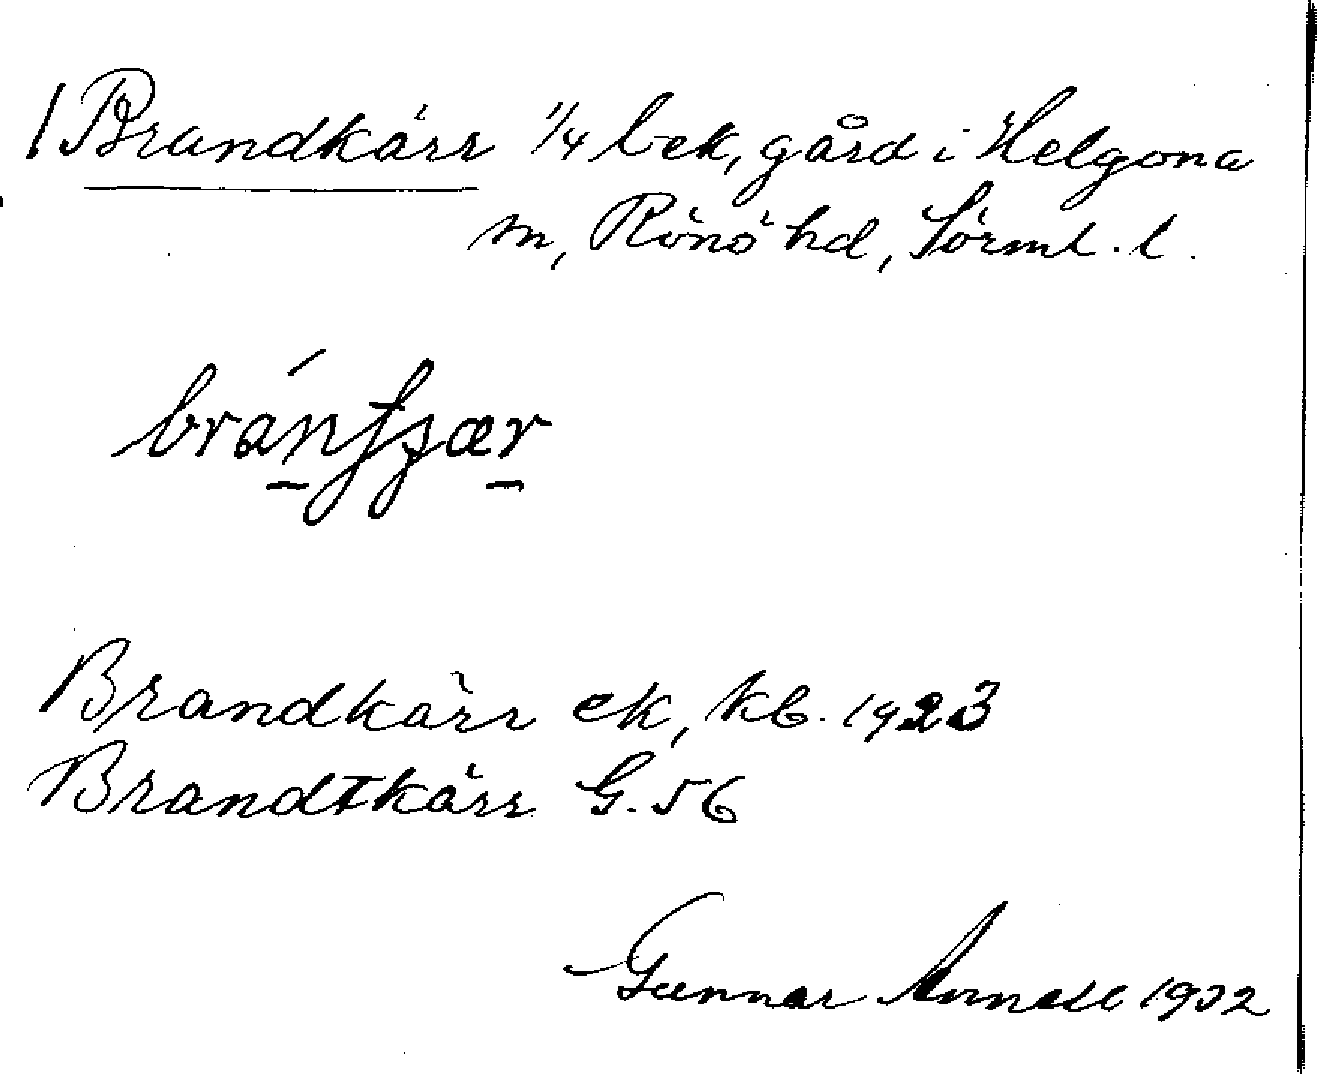 / Brandkärr 1/4 bek, gård i Helgona
sn, Rönö hd, Sörml. l.
Brandkärr ek, kb. 1923
Brandtkärr G. 56
Gunnar 1932